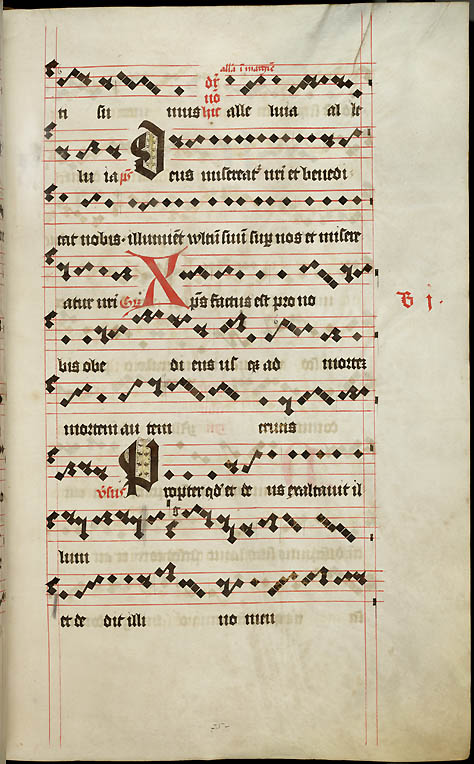 alla i
n su mus hic alle luia al le
lu ia ps Deus misereat' nri et benedi
cat nobis · illumiet vultu suu sup nos et miser
eatur nri Xps factus est pro no
B j .
bis obe di ens us q ad mortez
mortem au tem crucis
vsus Propter qd et de us exaltavit il
lum
et de dit illi no men